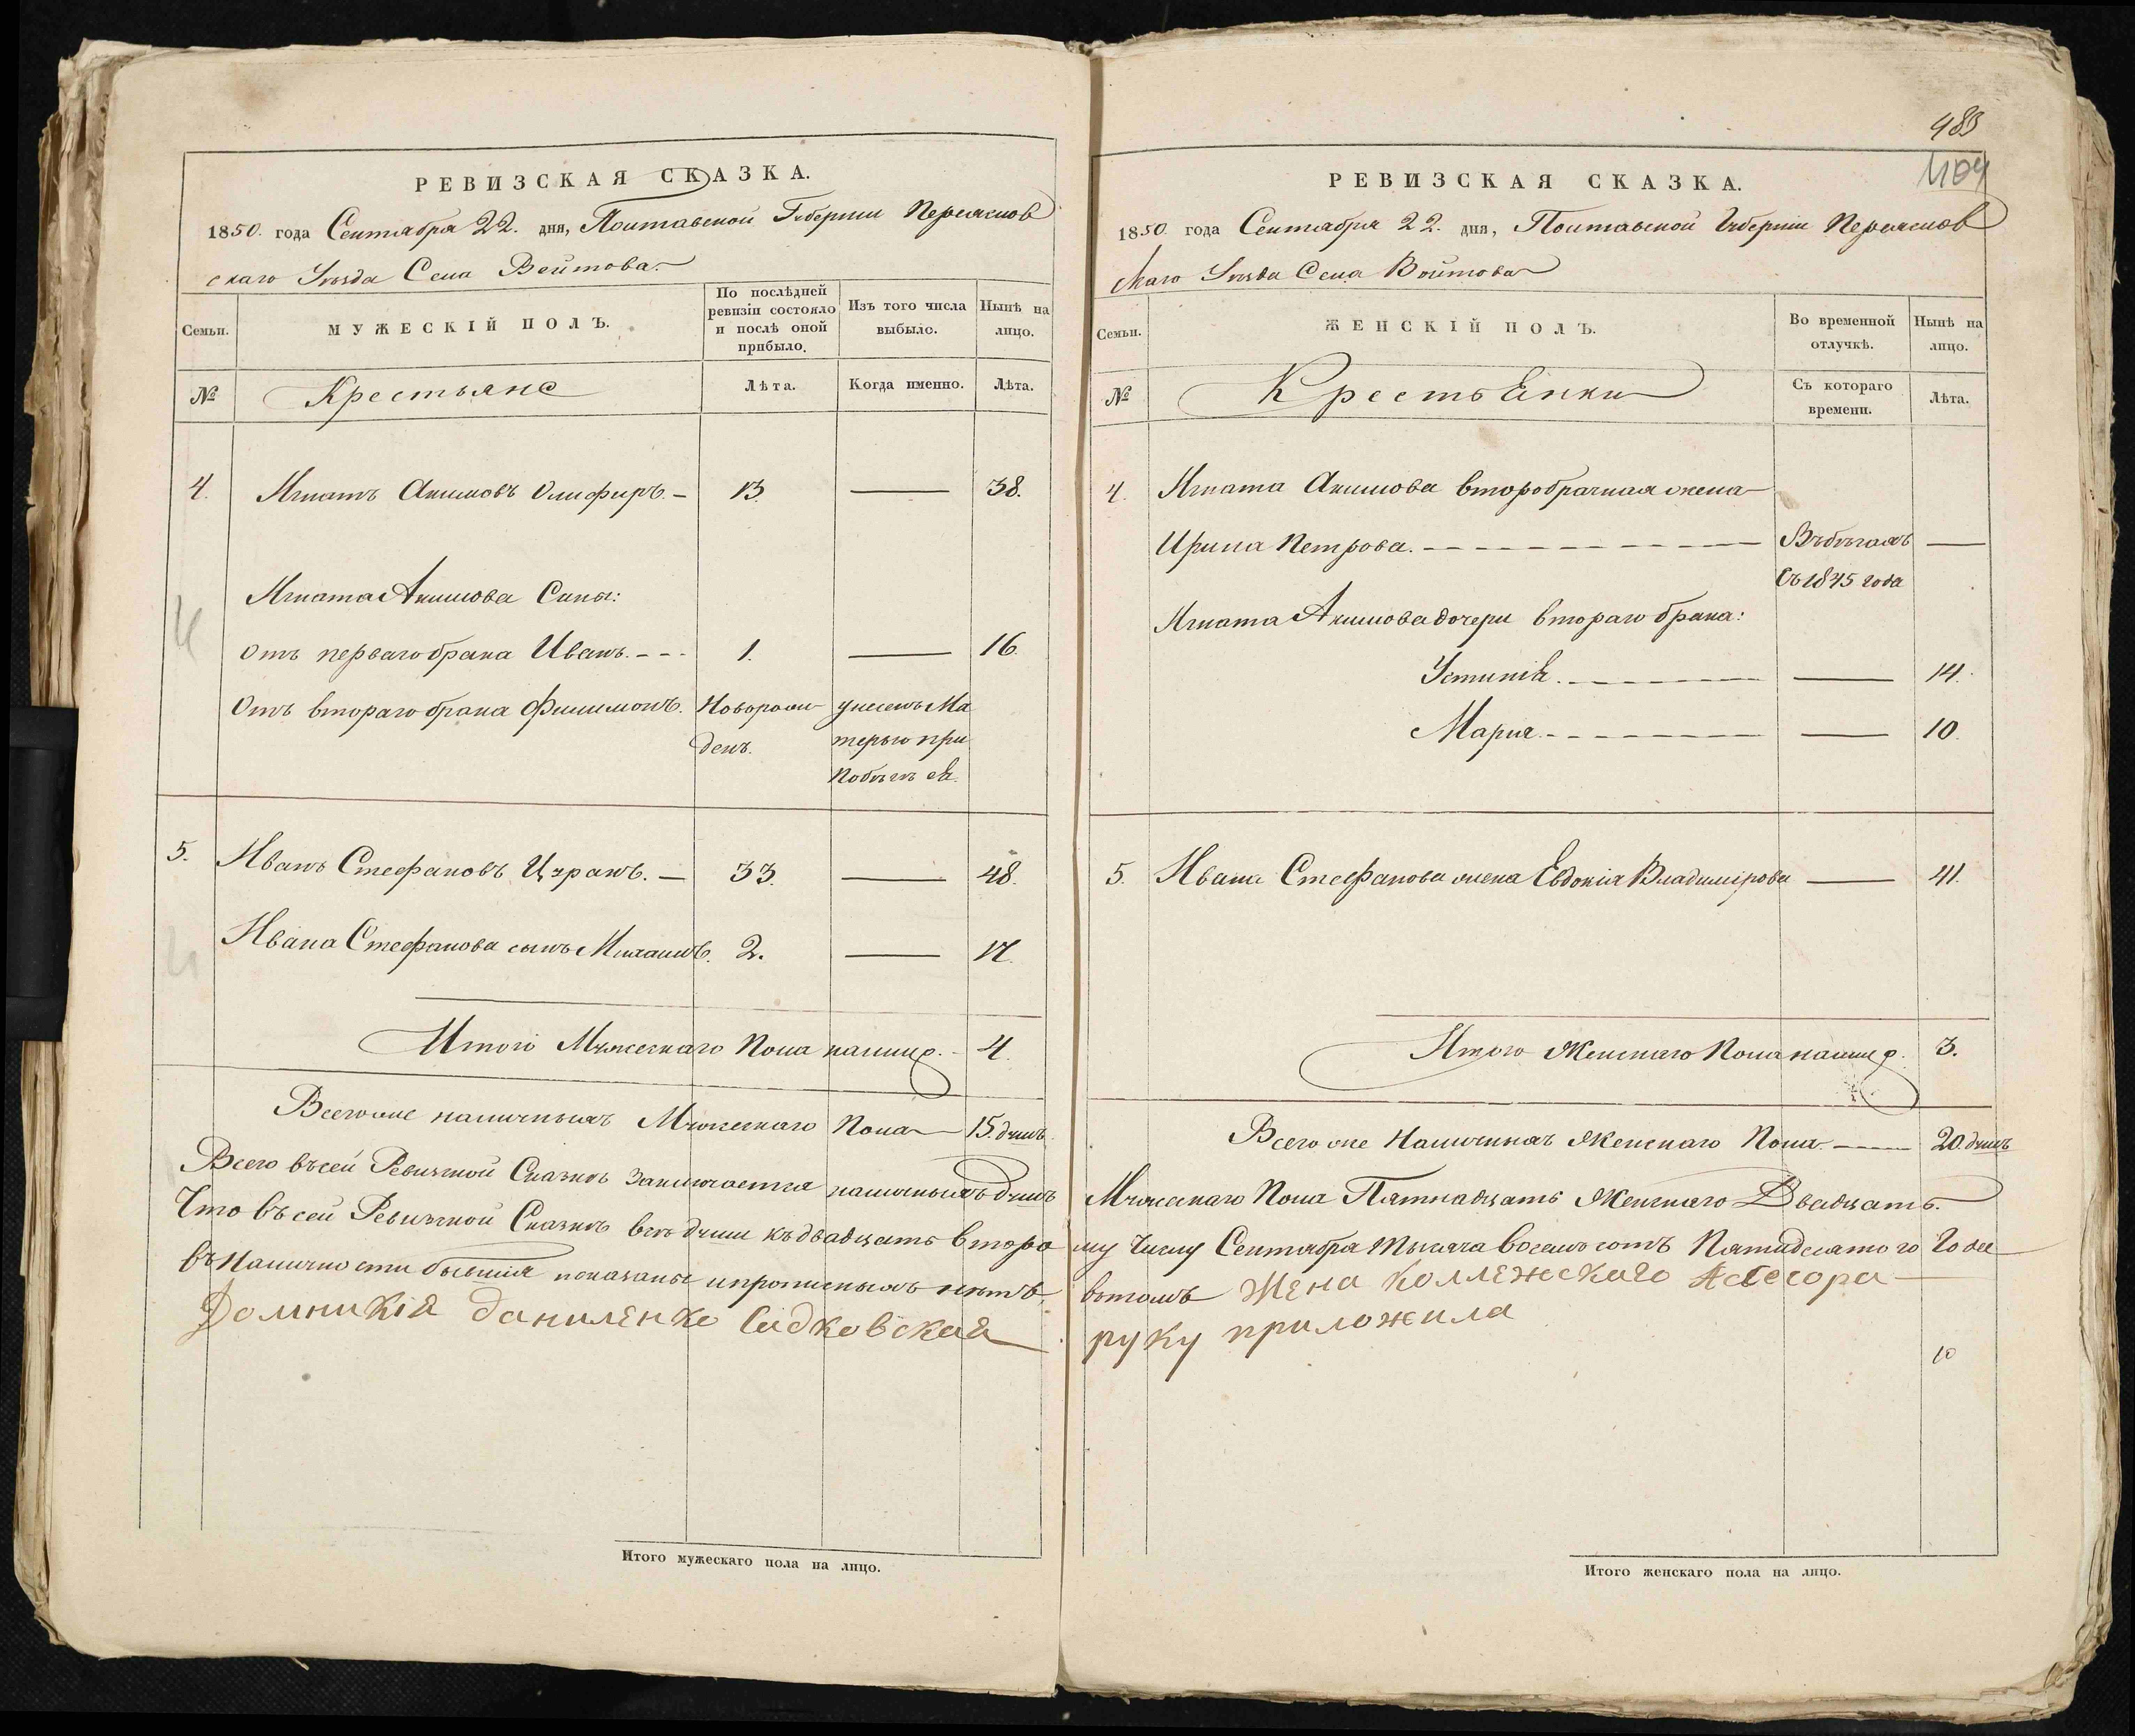 РЕВИЗСКАЯ СКАЗКА.
1850. года Сентября 22. дня, Полтавской Губернии Переяслов
скаго Уѣзда Села Войтова.
Семьи.
МУЖЕСКІЙ ПОЛЪ.
По послѣдней ревизіи состояло и послѣ оной прибыло.
Изъ того числа выбыло.
Нынѣ на лицо.
№
Крестьяне
Лѣта.
Когда именно.
Лѣта.
4. Игнатъ Акимовъ Олифиръ. — 13. — 38.
Игната Акимова Сины:
Отъ перваго брака Иванъ. 1. — 16.
Отъ втораго брака Филимонъ. Новорож унесенъ Ма
денъ. терью при
побѣгѣ ея.
5. Иванъ Стефановъ — 33. — 48.
Ивана Стефанова сынъ 2. — 17.
Итого Мужескаго Пола налицо. 4.
Всего же наличныхъ Мужескаго Пола — 15. душъ.
Всего въ сей Ревизской Сказкѣ заключается наличныхъ душъ
Что въ сей Ревизской Сказкѣ всѣ души къ двадцать второ
въ Наличности бывшія показаны и прописныхъ нѣтъ,
Домникія даниленко Садковская
Итого мужескаго пола на лицо.
489
1104
РЕВИЗСКАЯ СКАЗКА.
1850. года Сентября 22. дня, Полтавской Губернии Переяслов
скаго Уѣзда Села Войтова
Семьи.
ЖЕНСКІЙ ПОЛЪ.
Во временной отлучкѣ.
Нынѣ на лицо.
№
Крестьянки
Съ котораго времени.
Лѣта.
4. Игната Акимова второбрачная жена
Ирина Петрова. — Въ бѣгахъ —
Съ 1845 года
Игната Акимова дочери втораго брака:
Устинія. — 14.
Мария. — 10.
5. Ивана Стефанова жена Евдокія Владимірова — 41.
Итого Женскаго Пола налицо. 3.
Всего же Наличныхъ Женскаго Пола. — 20. душъ
Мужескаго Пола Пятнадцать Женскаго Двадцать.
му Числу Сентября тысяча восемьсотъ Пятидесятого Года
вътомъ жена коллежскаго Асесора
руку приложила
10
Итого женскаго пола на лицо.